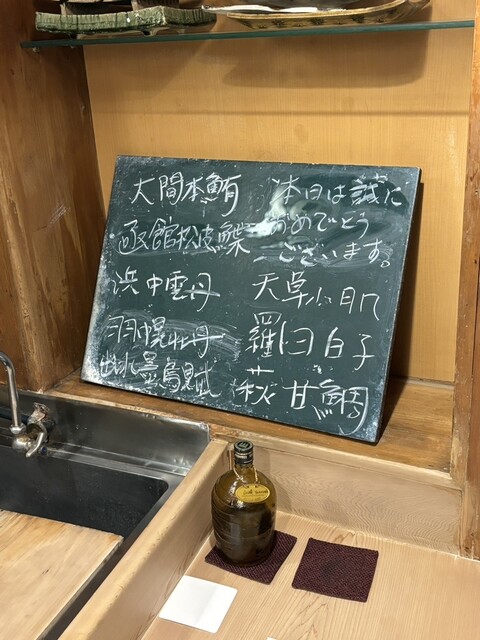 大間本鮪
本日は誠に
おめでとう
ございます。
函館松皮鰈
浜中雲丹
天草小肌
羽幌牡丹
羅臼白子
出水墨烏賊
萩甘鯛